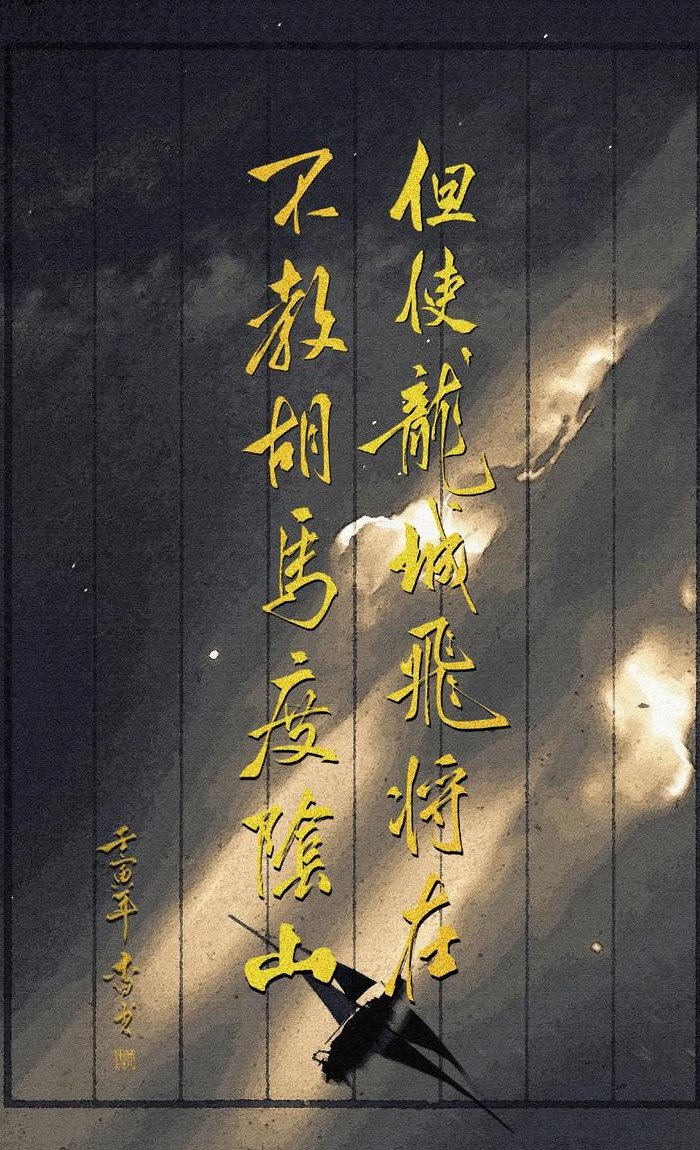 但使龍城飛将在
不教胡馬度陰山
壬寅年